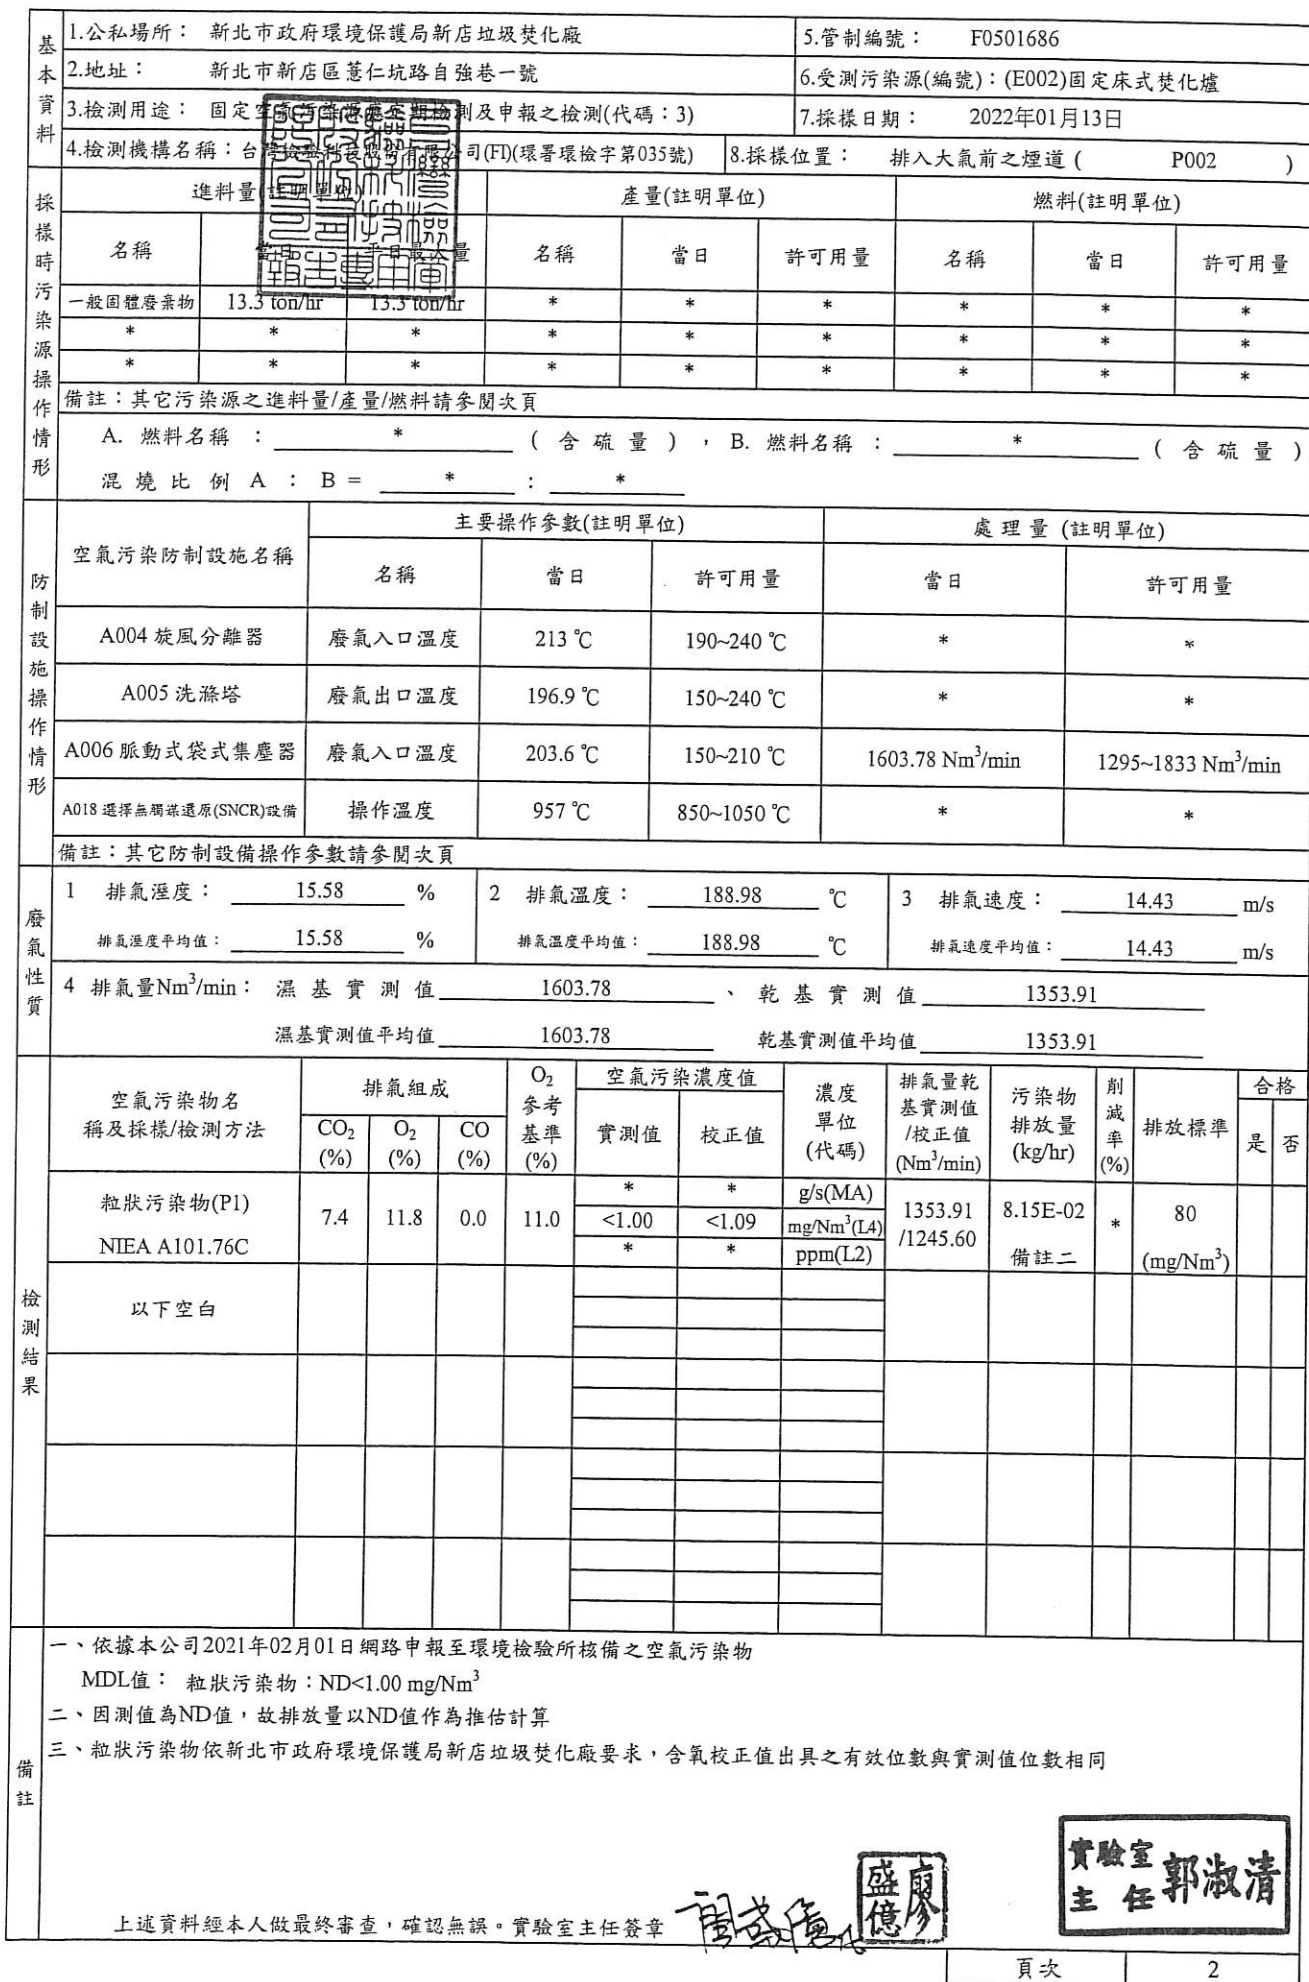 基本資料
1.公私場所： 新北市政府環境保護局新店垃圾焚化廠
5.管制編號： F0501686
2.地址： 新北市新店區薏仁坑路自強巷一號
6.受測污染源(編號)：(E002)固定床式焚化爐
3.檢測用途： 固定空氣污染源應定期檢測及申報之檢測(代碼：3)
7.採樣日期： 2022年01月13日
4.檢測機構名稱：台灣檢驗科技股份有限公司(FI)(環署環檢字第035號)
8.採樣位置： 排入大氣前之煙道 ( P002 )
採樣時污染源操作情形
進料量(註明單位) 產量(註明單位) 燃料(註明單位)
名稱 當日 平日最大量 名稱 當日 許可用量 名稱 當日 許可用量
一般固體廢棄物 13.3 ton/hr 13.3 ton/hr * * * * * *
* * * * * * * * *
* * * * * * * * *
備註：其它污染源之進料量/產量/燃料請參閱次頁
A. 燃料名稱 ： * ( 含 硫 量 ) ，B. 燃料名稱 ： * ( 含 硫 量 )
混 燒 比 例 A ： B = * ： *
防制設施操作情形
空氣污染防制設施名稱 主要操作參數(註明單位) 處 理 量 (註明單位)
名稱 當日 許可用量 當日 許可用量
A004 旋風分離器 廢氣入口溫度 213 ℃ 190~240 ℃ * *
A005 洗滌塔 廢氣出口溫度 196.9 ℃ 150~240 ℃ * *
A006 脈動式袋式集塵器 廢氣入口溫度 203.6 ℃ 150~210 ℃ 1603.78 Nm³/min 1295~1833 Nm³/min
A018 選擇無觸媒還原(SNCR)設備 操作溫度 957 ℃ 850~1050 ℃ * *
備註：其它防制設備操作參數請參閱次頁
廢氣性質
1 排氣溼度： 15.58 % 2 排氣溫度： 188.98 ℃ 3 排氣速度： 14.43 m/s
排氣溼度平均值： 15.58 % 排氣溫度平均值： 188.98 ℃ 排氣速度平均值： 14.43 m/s
4 排氣量Nm³/min： 濕 基 實 測 值 1603.78 、 乾 基 實 測 值 1353.91
濕基實測值平均值 1603.78 乾基實測值平均值 1353.91
檢測結果
空氣污染物名稱及採樣/檢測方法 排氣組成 O₂參考基準(%) 空氣污染濃度值 濃度單位(代碼) 排氣量乾基實測值/校正值(Nm³/min) 污染物排放量(kg/hr) 削減率(%) 排放標準 合格
CO₂(%) O₂(%) CO(%) 實測值 校正值 是 否
粒狀污染物(P1) * * g/s(MA)
7.4 11.8 0.0 11.0 <1.00 <1.09 mg/Nm³(L4) 1353.91 /1245.60 8.15E-02 * 80
NIEA A101.76C * * ppm(L2) 備註二 (mg/Nm³)
以下空白
備註
一、依據本公司2021年02月01日網路申報至環境檢驗所核備之空氣污染物
MDL值： 粒狀污染物：ND<1.00 mg/Nm³
二、因測值為ND值，故排放量以ND值作為推估計算
三、粒狀污染物依新北市政府環境保護局新店垃圾焚化廠要求，含氧校正值出具之有效位數與實測值位數相同
實驗室主任 郭淑清
廖盛億
上述資料經本人做最終審查，確認無誤。實驗室主任簽章
頁次 2